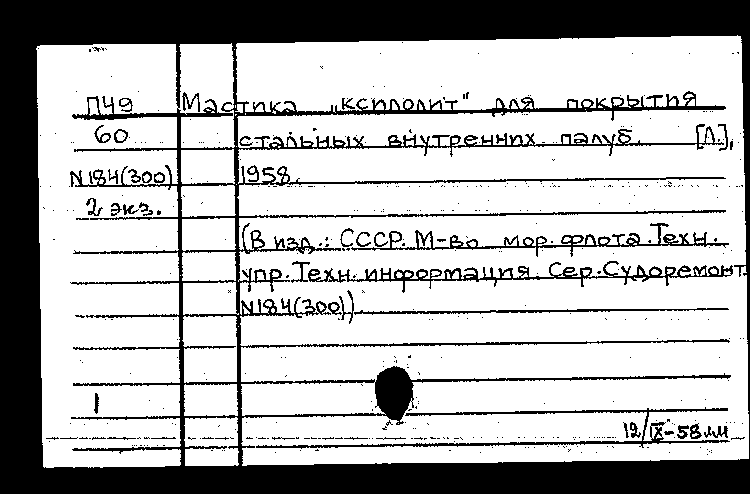 П49 Мастика „ксилолит" для покрытия
60 стальных внутренних палуб. [Л.],
N184(300) 1958.
2 экз.
(В изд.: СССР. М-во мор. флота. Техн.
упр. Техн. информация. Сер. Судоремонт
N184(300)).
1
12/IX-58